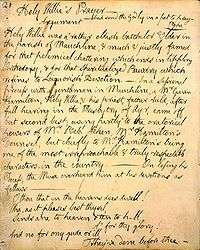 2)
Holy Willie's Prayer —
Argument
And send the Godly in a pet to pray —
Pope
Holy Willie was a rather oldish batchelor Elder in
the parish of Mauchline, & much & justly famed
for that polemical chattering which ends in tippling
Orthodoxy, & for that Spiritualized Bawdry which
refines to Liquorish Devotion — In a Sessional
Process with a gentleman in Mauchline, a Mr Gavin
Hamilton, Holy Willie, & his priest, father Auld, after
full hearing in the Presbytry of Ayr, came off
but second best; owing partly to the oratorical
powers of Mr Robt Aiken, Mr Hamilton's
Counsel; but chiefly to Mr Hamilton's being
one of the most irreproachable & truly respectable
characters in the country
the Muse overheard him at his devotions as
follows —
O thou that in the heavens does dwell!
Wha, as it pleases best thysel,
Sends ane to heaven & ten to h-ll,
A' for thy glory!
And no for ony gude or ill
They've done before thee —